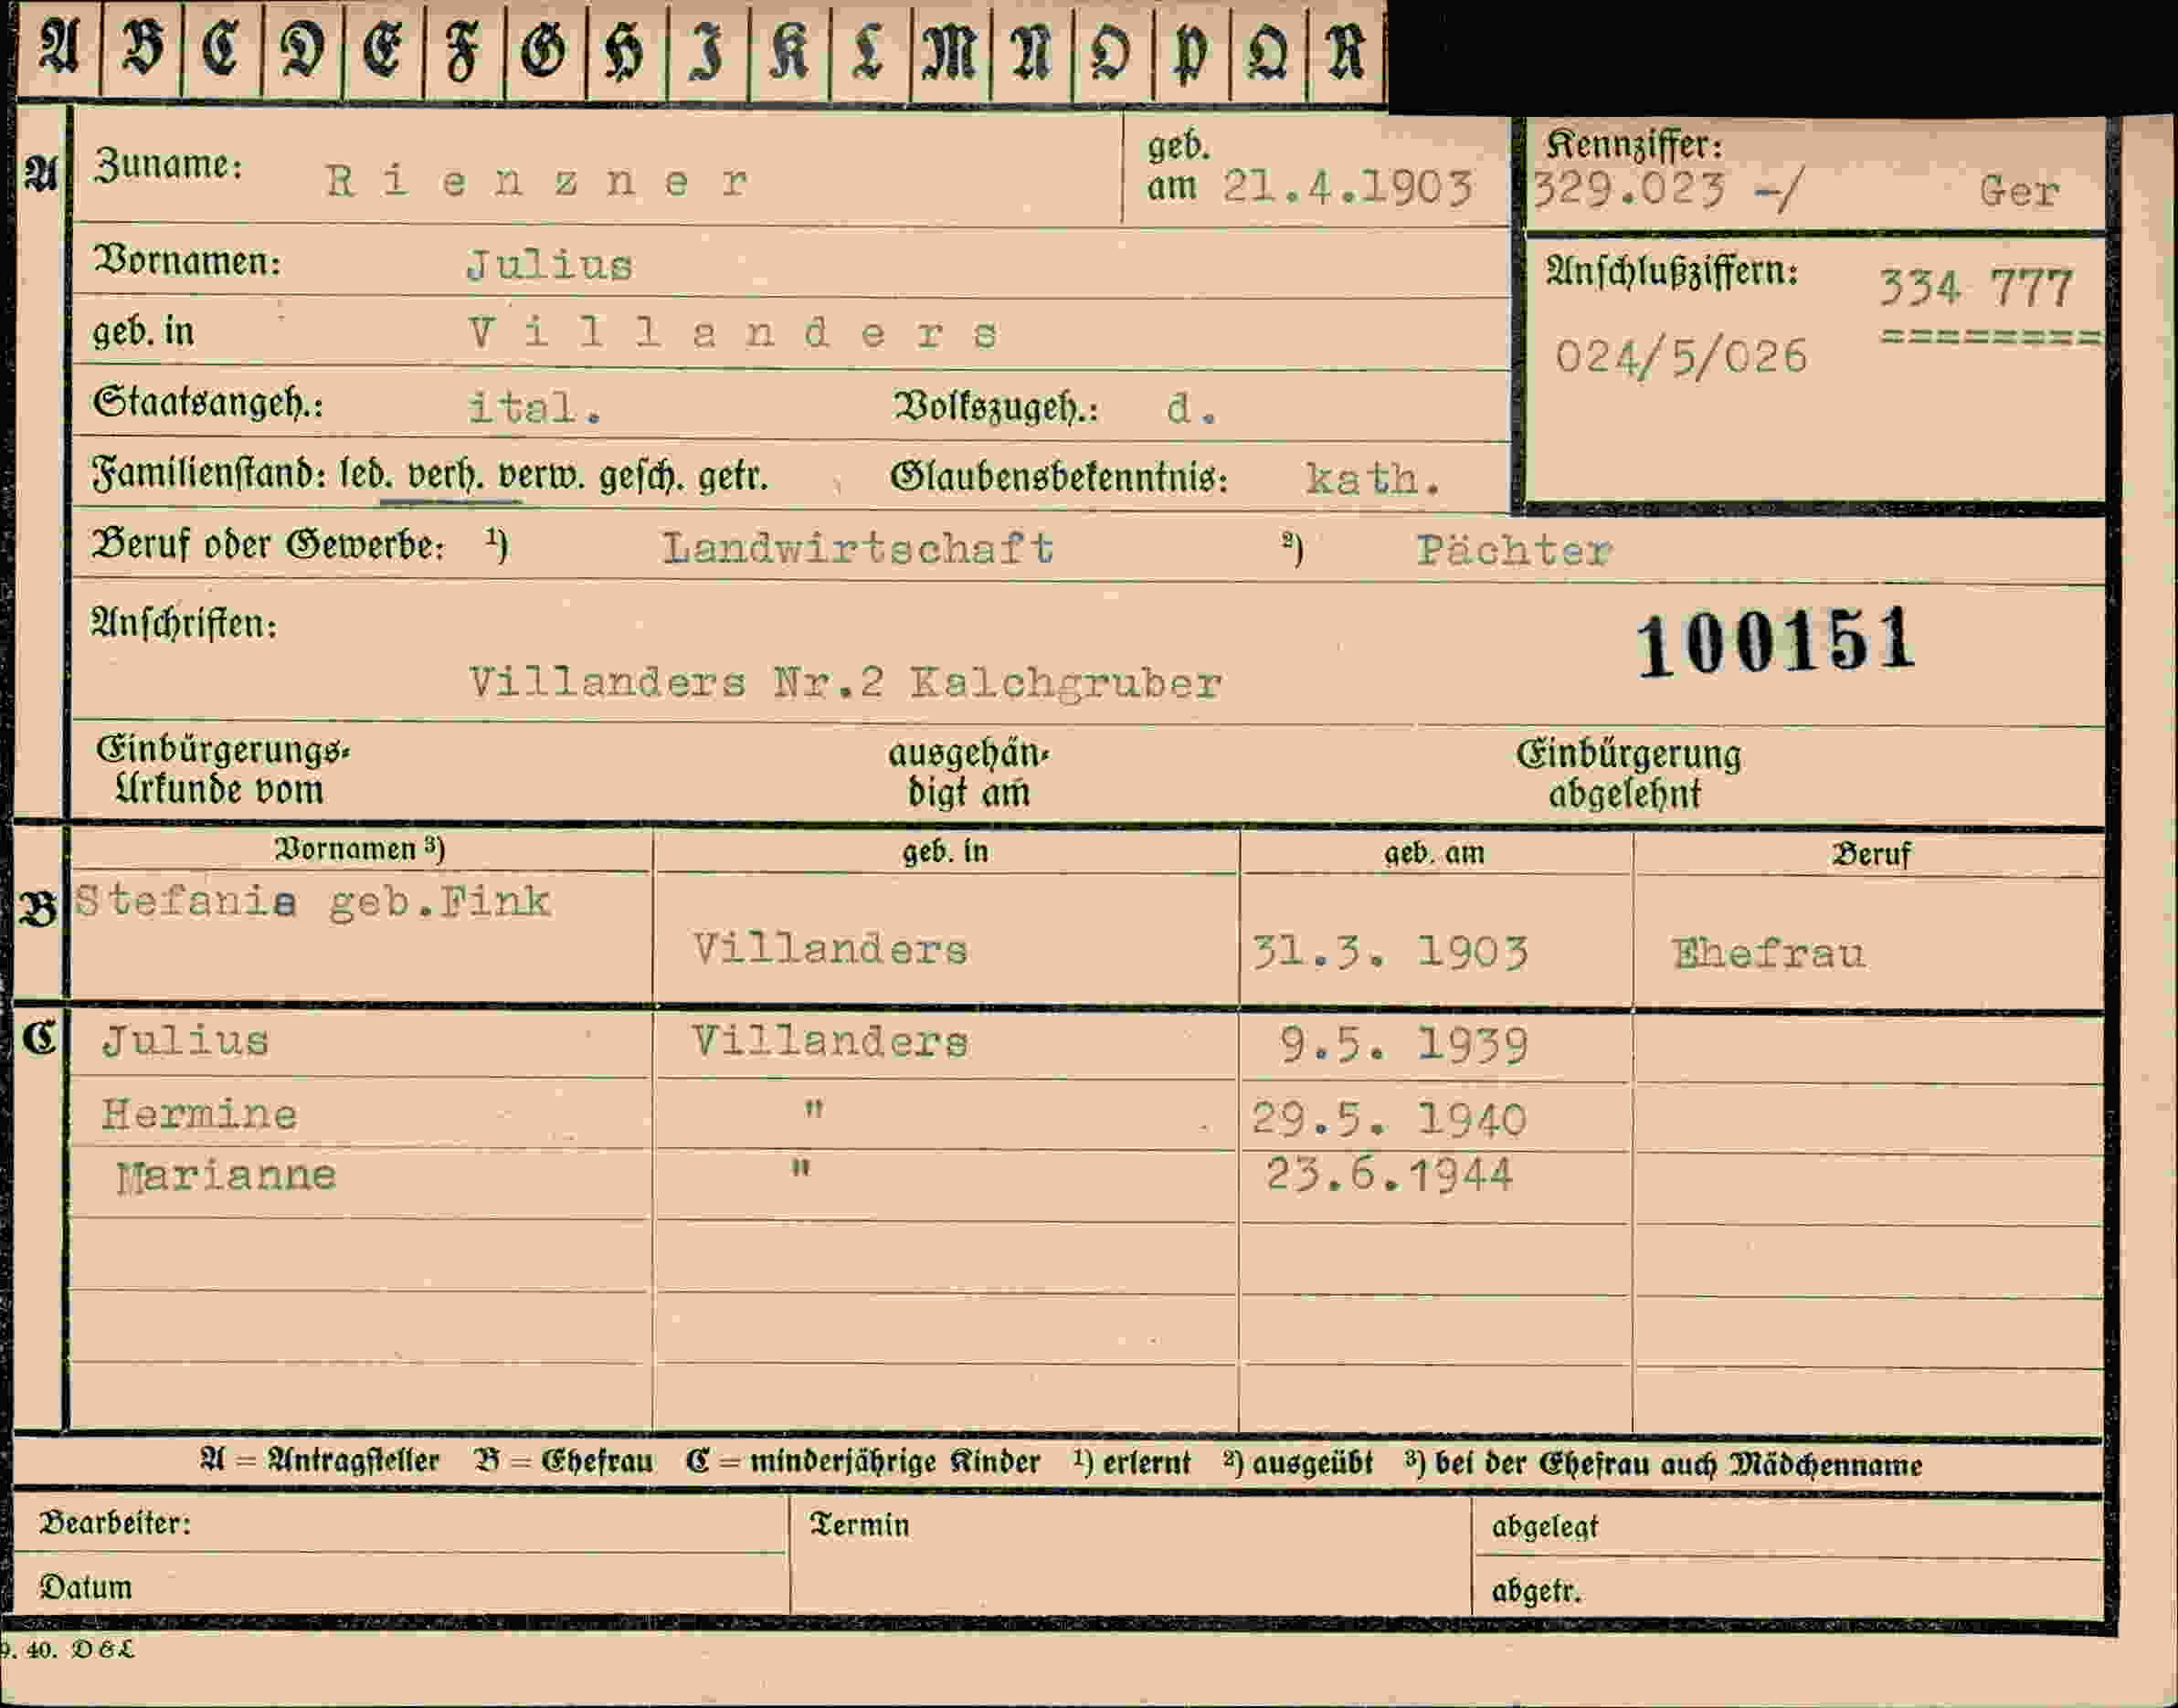 A B C D E F G H I K L M N O P Q R
A Zuname: Rienzner geb. am 21.4.1903 Kennziffer: 329.023 -/ Ger
Vornamen: Julius Anschlußziffern: 334 777
========
geb. in Villanders 024/5/026
Staatsangeh.: ital. Volkszugeh.: d.
Familienstand: led. verh. verw. gesch. getr. Glaubensbekenntnis: kath.
Beruf oder Gewerbe: ¹) Landwirtschaft ²) Pächter
Anschriften: 100151
Villanders Nr.2 Kalchgruber
Einbürgerungs- ausgehän- Einbürgerung
Urkunde vom digt am abgelehnt
Vornamen ³) geb. in geb. am Beruf
B Stefanie geb.Fink
Villanders 31.3. 1903 Ehefrau
C Julius Villanders 9.5. 1939
Hermine " 29.5. 1940
Marianne " 23.6.1944
A = Antragsteller B = Ehefrau C = minderjährige Kinder ¹) erlernt ²) ausgeübt ³) bei der Ehefrau auch Mädchenname
Bearbeiter: Termin abgelegt
Datum abgetr.
9. 40. D & L